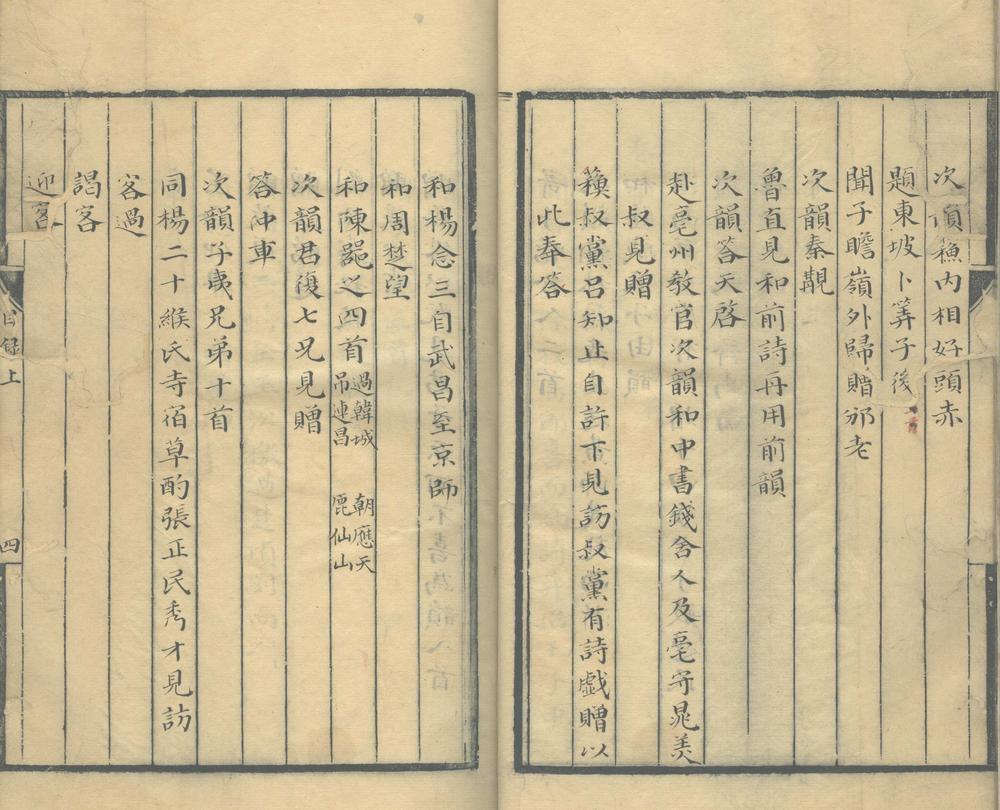 次韻稱内相好頭赤
題東坡卜筭子後
聞子瞻嶺外歸贈邠老
次韻秦覯
魯直見和前詩再用前韻
次韻答天啓
赴亳州教官次韻和中書錢舍人及亳守晁美
叔見贈
蘓叔黨呂知止自許下見訪叔黨有詩戯贈以
此奉答
和楊念三自武昌至京師
和周楚望
和陳器之四首 過韓城 朝應天
吊連昌 鹿仙山
次韻君復七兄見贈
答沖車
次韻子夷兄弟十首
同楊二十緱氏寺宿草酌張正民秀才見訪
客過
謁客
迎客
目録上
四